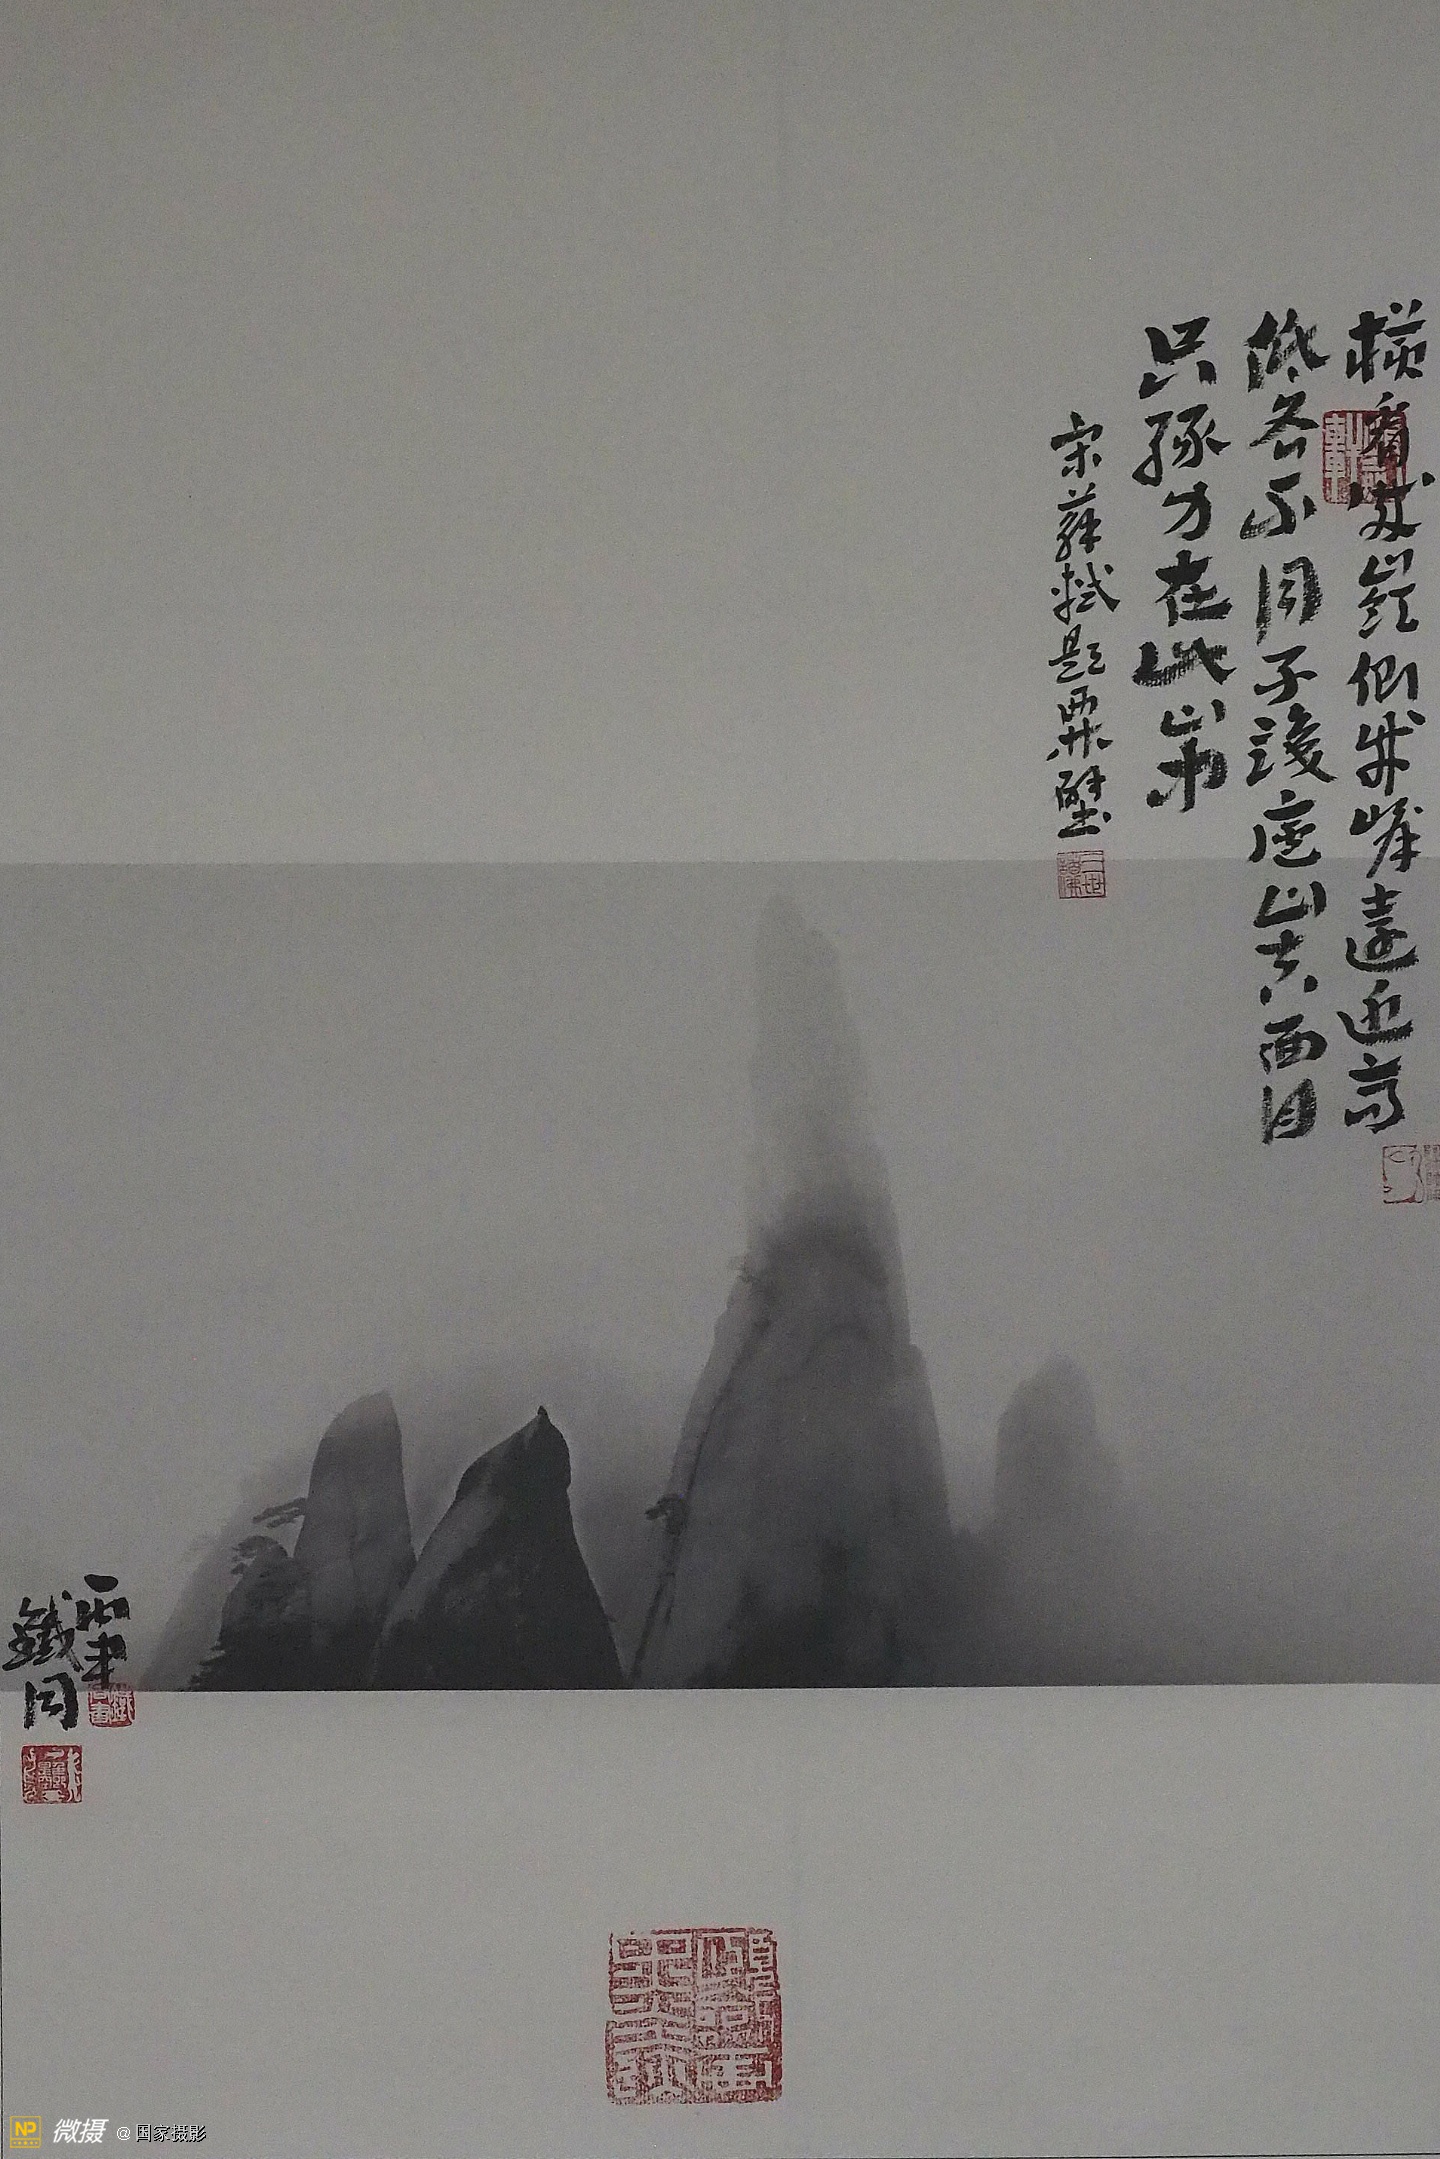 橫看成嶺側成峰遠近高
低各不同不識廬山真面目
只緣身在此山中
宋蘇軾題西林壁
鐵同
NP 微摄 @国家摄影